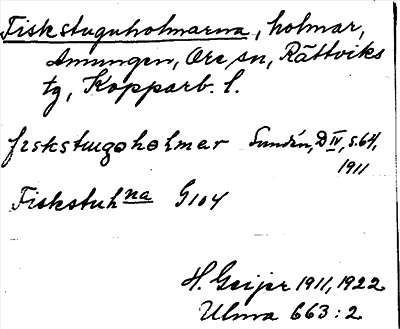 Fiskstuguholmarna, holmar,
Amungen, Ore sn, Rättviks
tg, Kopparb. l.
fiskstugoholmar Sundén, D IV, s. 64,
1911
Fiskstuhna G104
H. Geijer 1911, 1922
Ulma 663:2